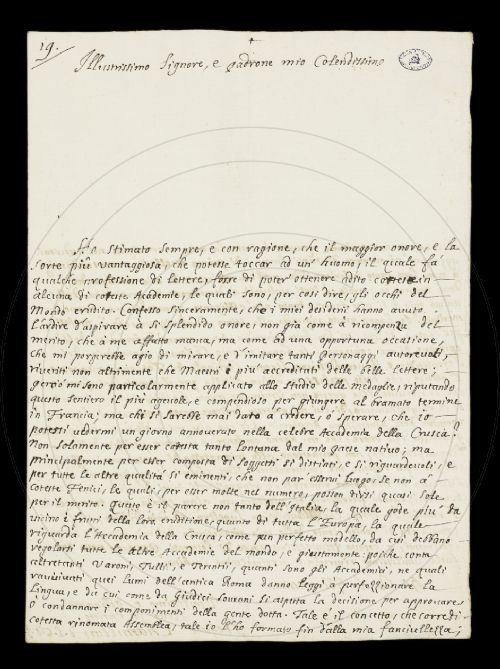 19.
Illustrissimo Signore, e Padrone mio Colendissimo
Ho stimato sempre, e con ragione, che il maggior onore, e la
sorte più vantaggiosa, che potesse toccar ad un' huomo, il quale fà
qualche professione di lettere, fosse di poter' ottenere adito in
alcuna di coteste Academie, le quali sono, per cosi dire, gli occhi del
Mondo erudito. Confesso sinceramente, che i miei desiderii hanno avuto
l'ardire d'aspirare à si splendido onore, non già come à ricompenza del
merito, che à me affatto manca, ma come ad una opportuna occasione,
che mi porgerebbe agio di mirare, e d'imitare tanti personaggi autorevoli,
riveriti non altrimente che Maestri i più accreditati delle belle lettere;
perciò mi sono particolarmente applicato allo studio delle medaglie, riputando
questo sentiero il più agevole, e compendioso per giungere al bramato termine
in Francia; ma chi si sarebbe mai dato à credere, ò sperare, che io
potessi vedermi un giorno annoverato nella celebre Accademia della Crusca?
Non solamente per esser cotesta tanto lontana dal mio paese nativo; ma
principalmente per esser composta di soggetti si distinti, e si riguardevoli, e
per tutte le altre qualità si eminenti, che non par esservi luogo, se non à
coteste Fenici, le quali, per esser molte nel numero, posson dirsi quasi sole
per il merito. Questo è il parere non tanto dell'Italia, la quale gode più da
vicino i frutti della loro eruditione, quanto di tutta l'Europa, la quale
riguarda l'Accademia della Crusca, come un perfetto modello, da cui debbano
regolarsi tutte le altre Accademie del mondo, e giustamente: poiche conta
altretanti Varoni, Tullii, e Terentii, quanti sono gli Accademici, ne quali
ravvivati quei lumi dell'antica Roma danno leggi à perfezzionare la
Lingua, e da cui come da Giudici sovrani si aspetta la decisione per approvare,
ò condannare i componimenti della gente dotta. Tale è il concetto, che corre di
cotesta rinomata Assemblea; tale io l'hò formato fin dalla mia fanciullezza;